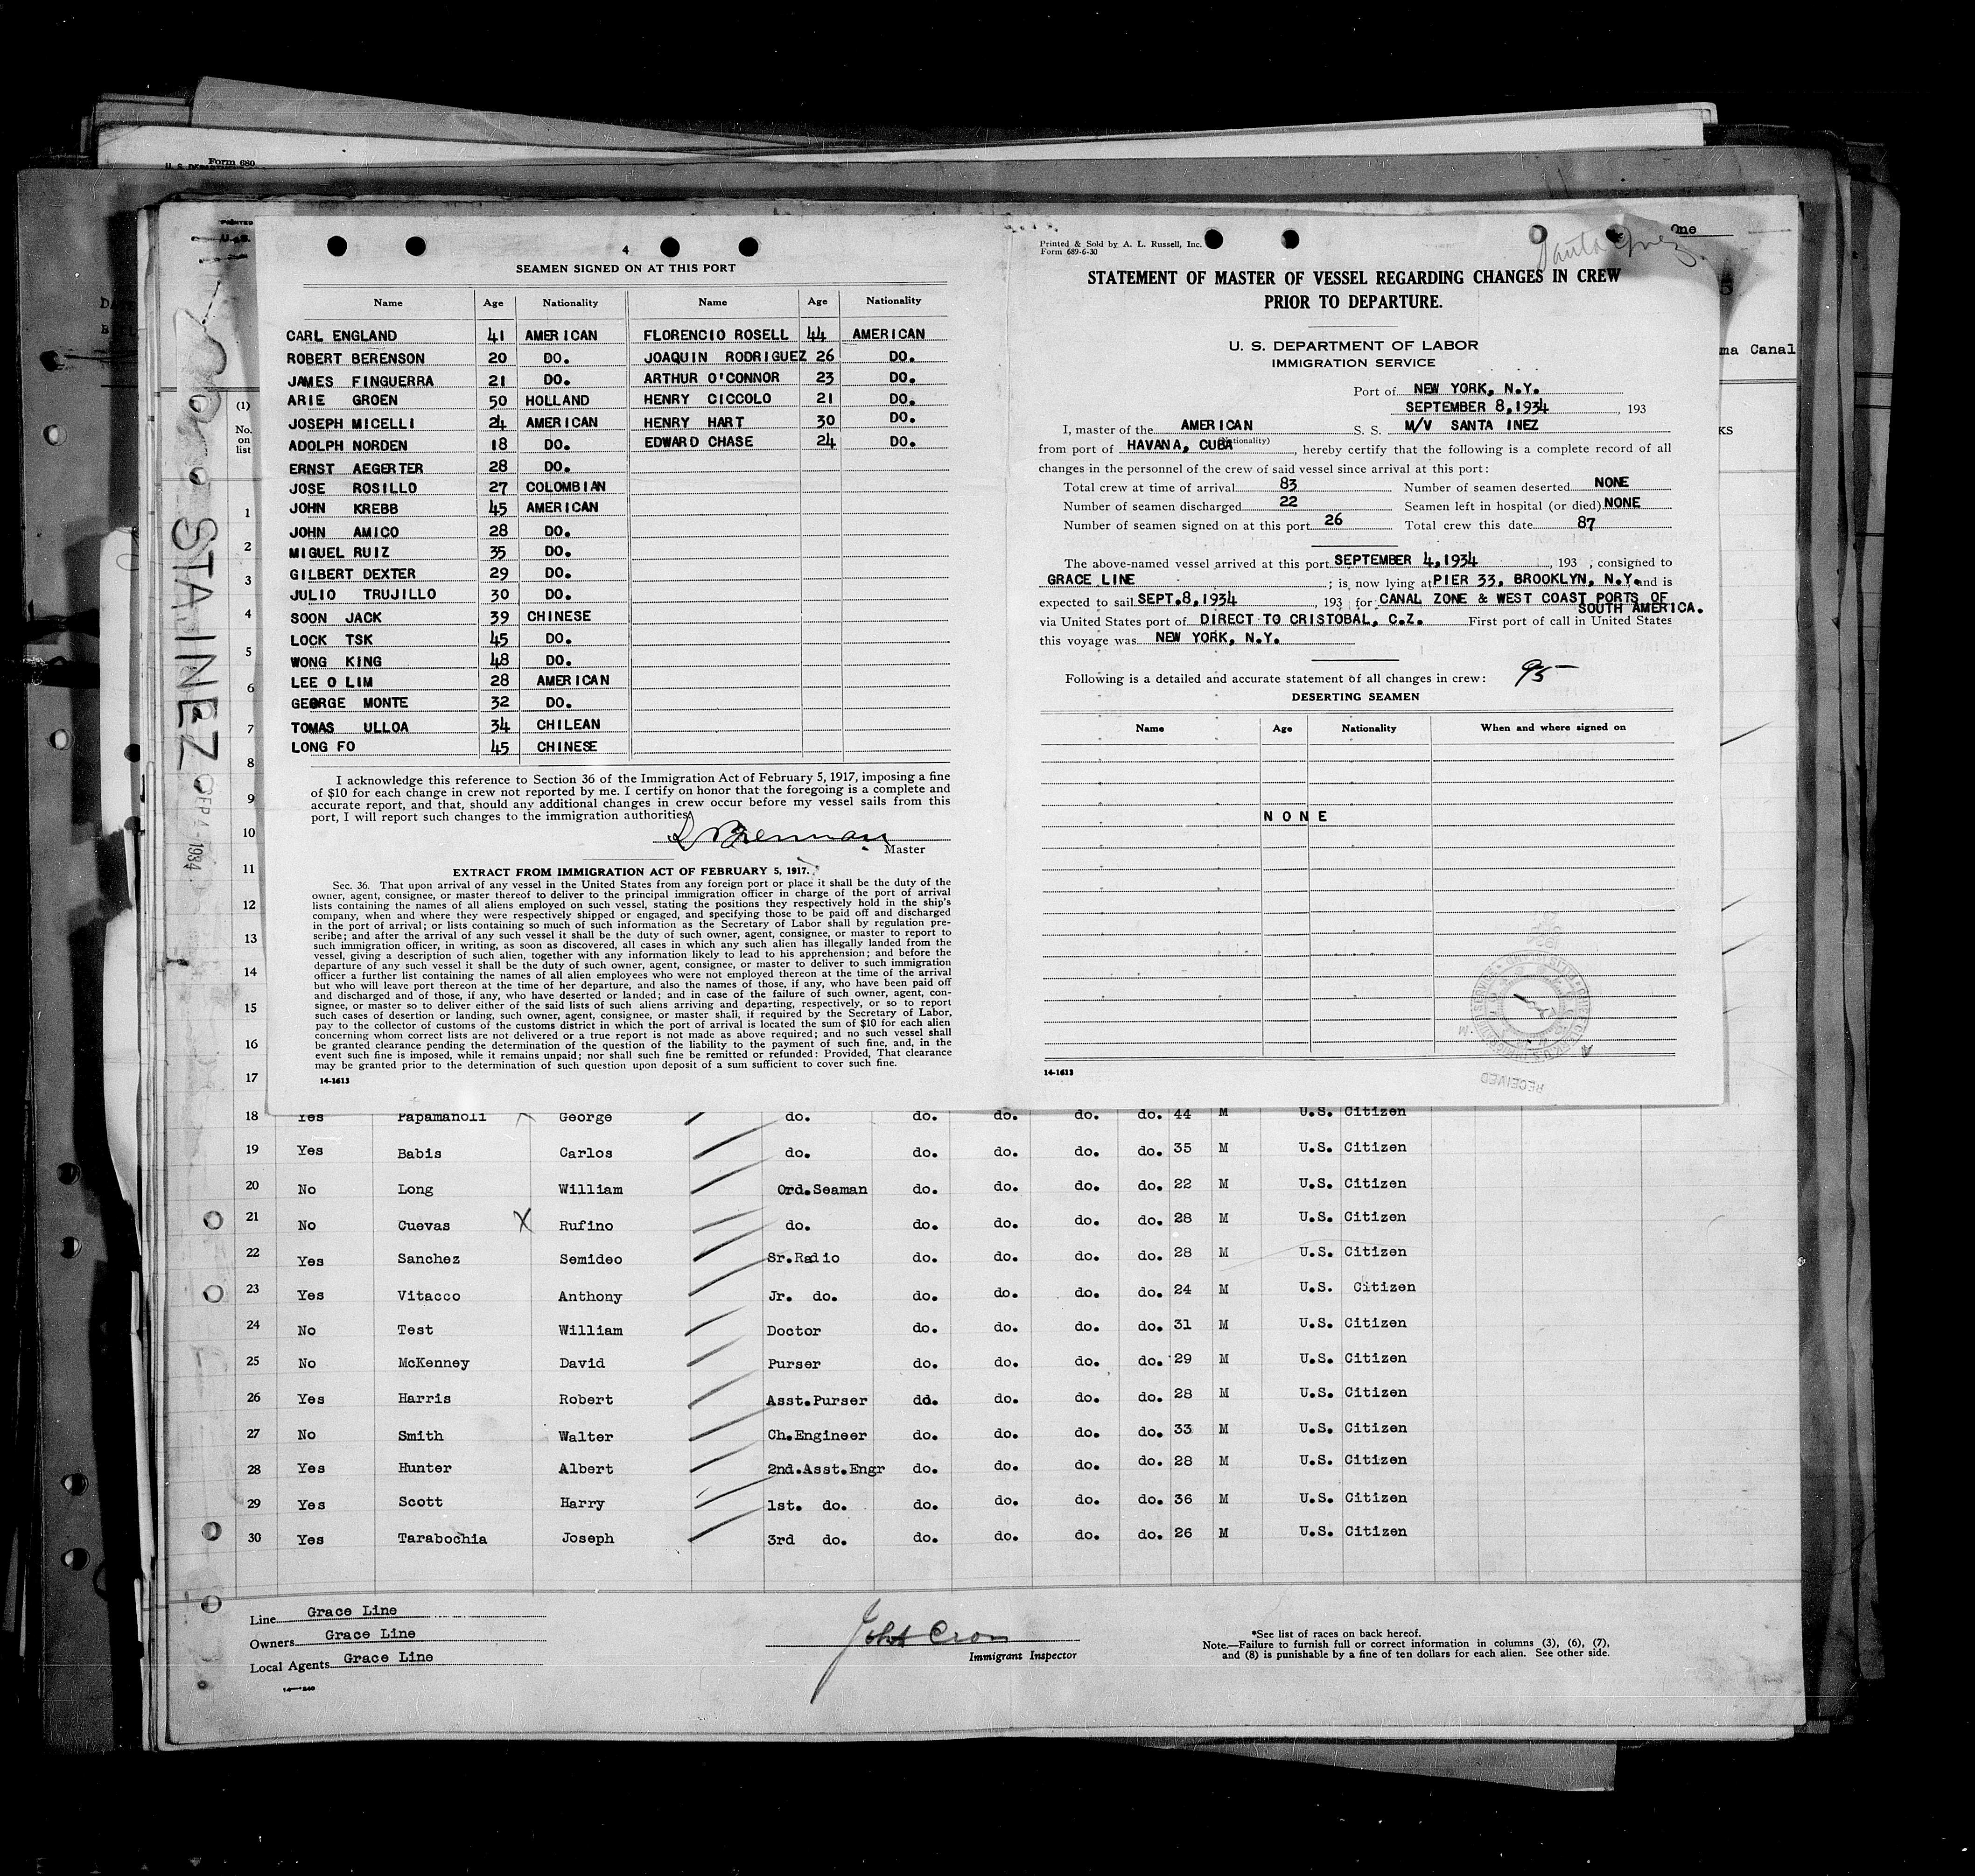 Form 680
PRINTED
U. S.
4
SEAMEN SIGNED ON AT THIS PORT
Name Age Nationality Name Age Nationality
CARL ENGLAND 41 AMERICAN FLORENCIO ROSELL 44 AMERICAN
ROBERT BERENSON 20 DO. JOAQUIN RODRIGUEZ 26 DO.
JAMES FINGUERRA 21 DO. ARTHUR O'CONNOR 23 DO.
ARIE GROEN 50 HOLLAND HENRY CICCOLO 21 DO.
JOSEPH MICELLI 24 AMERICAN HENRY HART 30 DO.
ADOLPH NORDEN 18 DO. EDWARD CHASE 24 DO.
ERNST AEGERTER 28 DO.
JOSE ROSILLO 27 COLOMBIAN
JOHN KREBB 45 AMERICAN
JOHN AMICO 28 DO.
MIGUEL RUIZ 35 DO.
GILBERT DEXTER 29 DO.
JULIO TRUJILLO 30 DO.
SOON JACK 39 CHINESE
LOCK TSK 45 DO.
WONG KING 48 DO.
LEE O LIM 28 AMERICAN
GEORGE MONTE 32 DO.
TOMAS ULLOA 34 CHILEAN
LONG FO 45 CHINESE
I acknowledge this reference to Section 36 of the Immigration Act of February 5, 1917, imposing a fine
of $10 for each change in crew not reported by me. I certify on honor that the foregoing is a complete and
accurate report, and that, should any additional changes in crew occur before my vessel sails from this
port, I will report such changes to the immigration authorities.
Brennan
Master
EXTRACT FROM IMMIGRATION ACT OF FEBRUARY 5, 1917.
Sec. 36. That upon arrival of any vessel in the United States from any foreign port or place it shall be the duty of the
owner, agent, consignee, or master thereof to deliver to the principal immigration officer in charge of the port of arrival
lists containing the names of all aliens employed on such vessel, stating the positions they respectively hold in the ship's
company, when and where they were respectively shipped or engaged, and specifying those to be paid off and discharged
in the port of arrival; or lists containing so much of such information as the Secretary of Labor shall by regulation pre-
scribe; and after the arrival of any such vessel it shall be the duty of such owner, agent, consignee, or master to report to
such immigration officer, in writing, as soon as discovered, all cases in which any such alien has illegally landed from the
vessel, giving a description of such alien, together with any information likely to lead to his apprehension; and before the
departure of any such vessel it shall be the duty of such owner, agent, consignee, or master to deliver to such immigration
officer a further list containing the names of all alien employees who were not employed thereon at the time of the arrival
but who will leave port thereon at the time of her departure, and also the names of those, if any, who have been paid off
and discharged and of those, if any, who have deserted or landed; and in case of the failure of such owner, agent, con-
signee, or master so to deliver either of the said lists of such aliens arriving and departing, respectively, or so to report
such cases of desertion or landing, such owner, agent, consignee, or master shall, if required by the Secretary of Labor,
pay to the collector of customs of the customs district in which the port of arrival is located the sum of $10 for each alien
concerning whom correct lists are not delivered or a true report is not made as above required; and no such vessel shall
be granted clearance pending the determination of the question of the liability to the payment of such fine, and, in the
event such fine is imposed, while it remains unpaid; nor shall such fine be remitted or refunded: Provided, That clearance
may be granted prior to the determination of such question upon deposit of a sum sufficient to cover such fine.
14-1613
Printed & Sold by A. L. Russell, Inc.
Form 689-6-30
Santa Inez
One
STATEMENT OF MASTER OF VESSEL REGARDING CHANGES IN CREW
PRIOR TO DEPARTURE.
U. S. DEPARTMENT OF LABOR
IMMIGRATION SERVICE
Port of NEW YORK, N.Y.
SEPTEMBER 8,1934, 193
I, master of the AMERICAN S. S. M/V SANTA INEZ
(Nationality)
from port of HAVANA, CUBA, hereby certify that the following is a complete record of all
changes in the personnel of the crew of said vessel since arrival at this port:
Total crew at time of arrival 83 Number of seamen deserted NONE
Number of seamen discharged 22 Seamen left in hospital (or died) NONE
Number of seamen signed on at this port 26 Total crew this date 87
The above-named vessel arrived at this port SEPTEMBER 4,1934, 193 , consigned to
GRACE LINE; is now lying at PIER 33, BROOKLYN, N.Y. and is
expected to sail SEPT.8,1934, 193 for CANAL ZONE & WEST COAST PORTS OF
SOUTH AMERICA.
via United States port of DIRECT TO CRISTOBAL, C.Z. First port of call in United States
this voyage was NEW YORK, N.Y.
Following is a detailed and accurate statement of all changes in crew: 95
DESERTING SEAMEN
Name Age Nationality When and where signed on
NONE
14-1613
RECEIVED
ma Canal
KS
STA. INEZ
SEP 4-1934
(1)
No.
on
list
1
2
3
4
5
6
7
8
9
10
11
12
13
14
15
16
17
18 Yes Papamanoli George do. do. do. do. do. 44 M U.S. Citizen
19 Yes Babis Carlos do. do. do. do. do. 35 M U.S. Citizen
20 No Long William Ord.Seaman do. do. do. do. 22 M U.S. Citizen
21 No Cuevas X Rufino do. do. do. do. do. 28 M U.S. Citizen
22 Yes Sanchez Semideo Sr.Radio do. do. do. do. 28 M U.S. Citizen
23 Yes Vitacco Anthony Jr. do. do. do. do. do. 24 M U.S. Citizen
24 No Test William Doctor do. do. do. do. 31 M U.S. Citizen
25 No McKenney David Purser do. do. do. do. 29 M U.S. Citizen
26 Yes Harris Robert Asst.Purser do. do. do. do. 28 M U.S. Citizen
27 No Smith Walter Ch.Engineer do. do. do. do. 33 M U.S. Citizen
28 Yes Hunter Albert 2nd.Asst.Engr do. do. do. do. 28 M U.S. Citizen
29 Yes Scott Harry 1st. do. do. do. do. do. 36 M U.S. Citizen
30 Yes Tarabochia Joseph 3rd do. do. do. do. do. 26 M U.S. Citizen
Line Grace Line
Owners Grace Line
Local Agents Grace Line
John Cron
Immigrant Inspector
*See list of races on back hereof.
Note.—Failure to furnish full or correct information in columns (3), (6), (7),
and (8) is punishable by a fine of ten dollars for each alien. See other side.